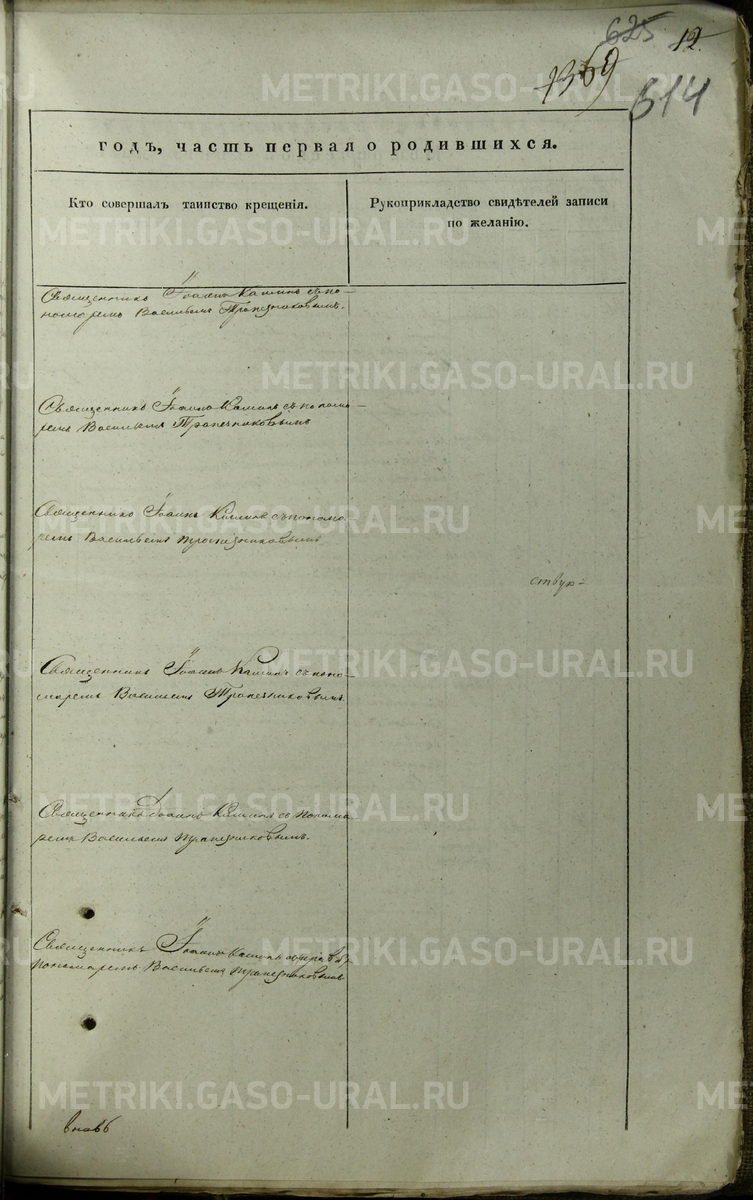 625
12.
1369
614
годъ, часть первая о родившихся.
Кто совершалъ таинство крещенія.
Рукоприкладство свидѣтелей записи
по желанію.
Священникъ Іоаннъ Кашинъ съ по-
номаремъ Васильемъ Трапезниковымъ.
Священникъ Іоаннъ Кашинъ съ понома-
ремъ Васильемъ Трапезниковымъ
Священникъ Іоаннъ Кашинъ съ понома-
ремъ Васильемъ Трапезниковымъ
ству-
Священникъ Іоаннъ Кашинъ съ поно-
маремъ Васильемъ Трапезниковымъ.
Священникъ Іоаннъ Кашинъ съ понома-
ремъ Васильемъ Трапезниковымъ.
Священникъ Іоаннъ Кашинъ
пономаремъ Васильемъ Трапезниковымъ
METRIKI.GASO-URAL.RU